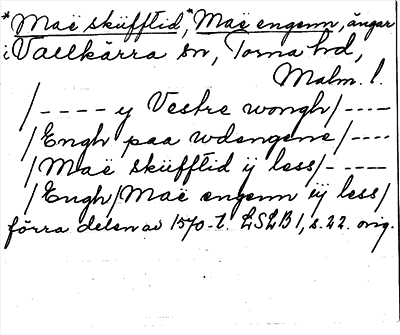 *Maë skiifftid, *Maë engenn, ängar
i Vallkärra sn, Torna hd,
Malm. l.
/---- y Vestre wongh/----
/Engh paa wdengene/----
/Maë skiifftid ij less/----
/Engh/Maë engenn iij less/
förra delen av 1570-t. LSLB 1, s. 22. orig.